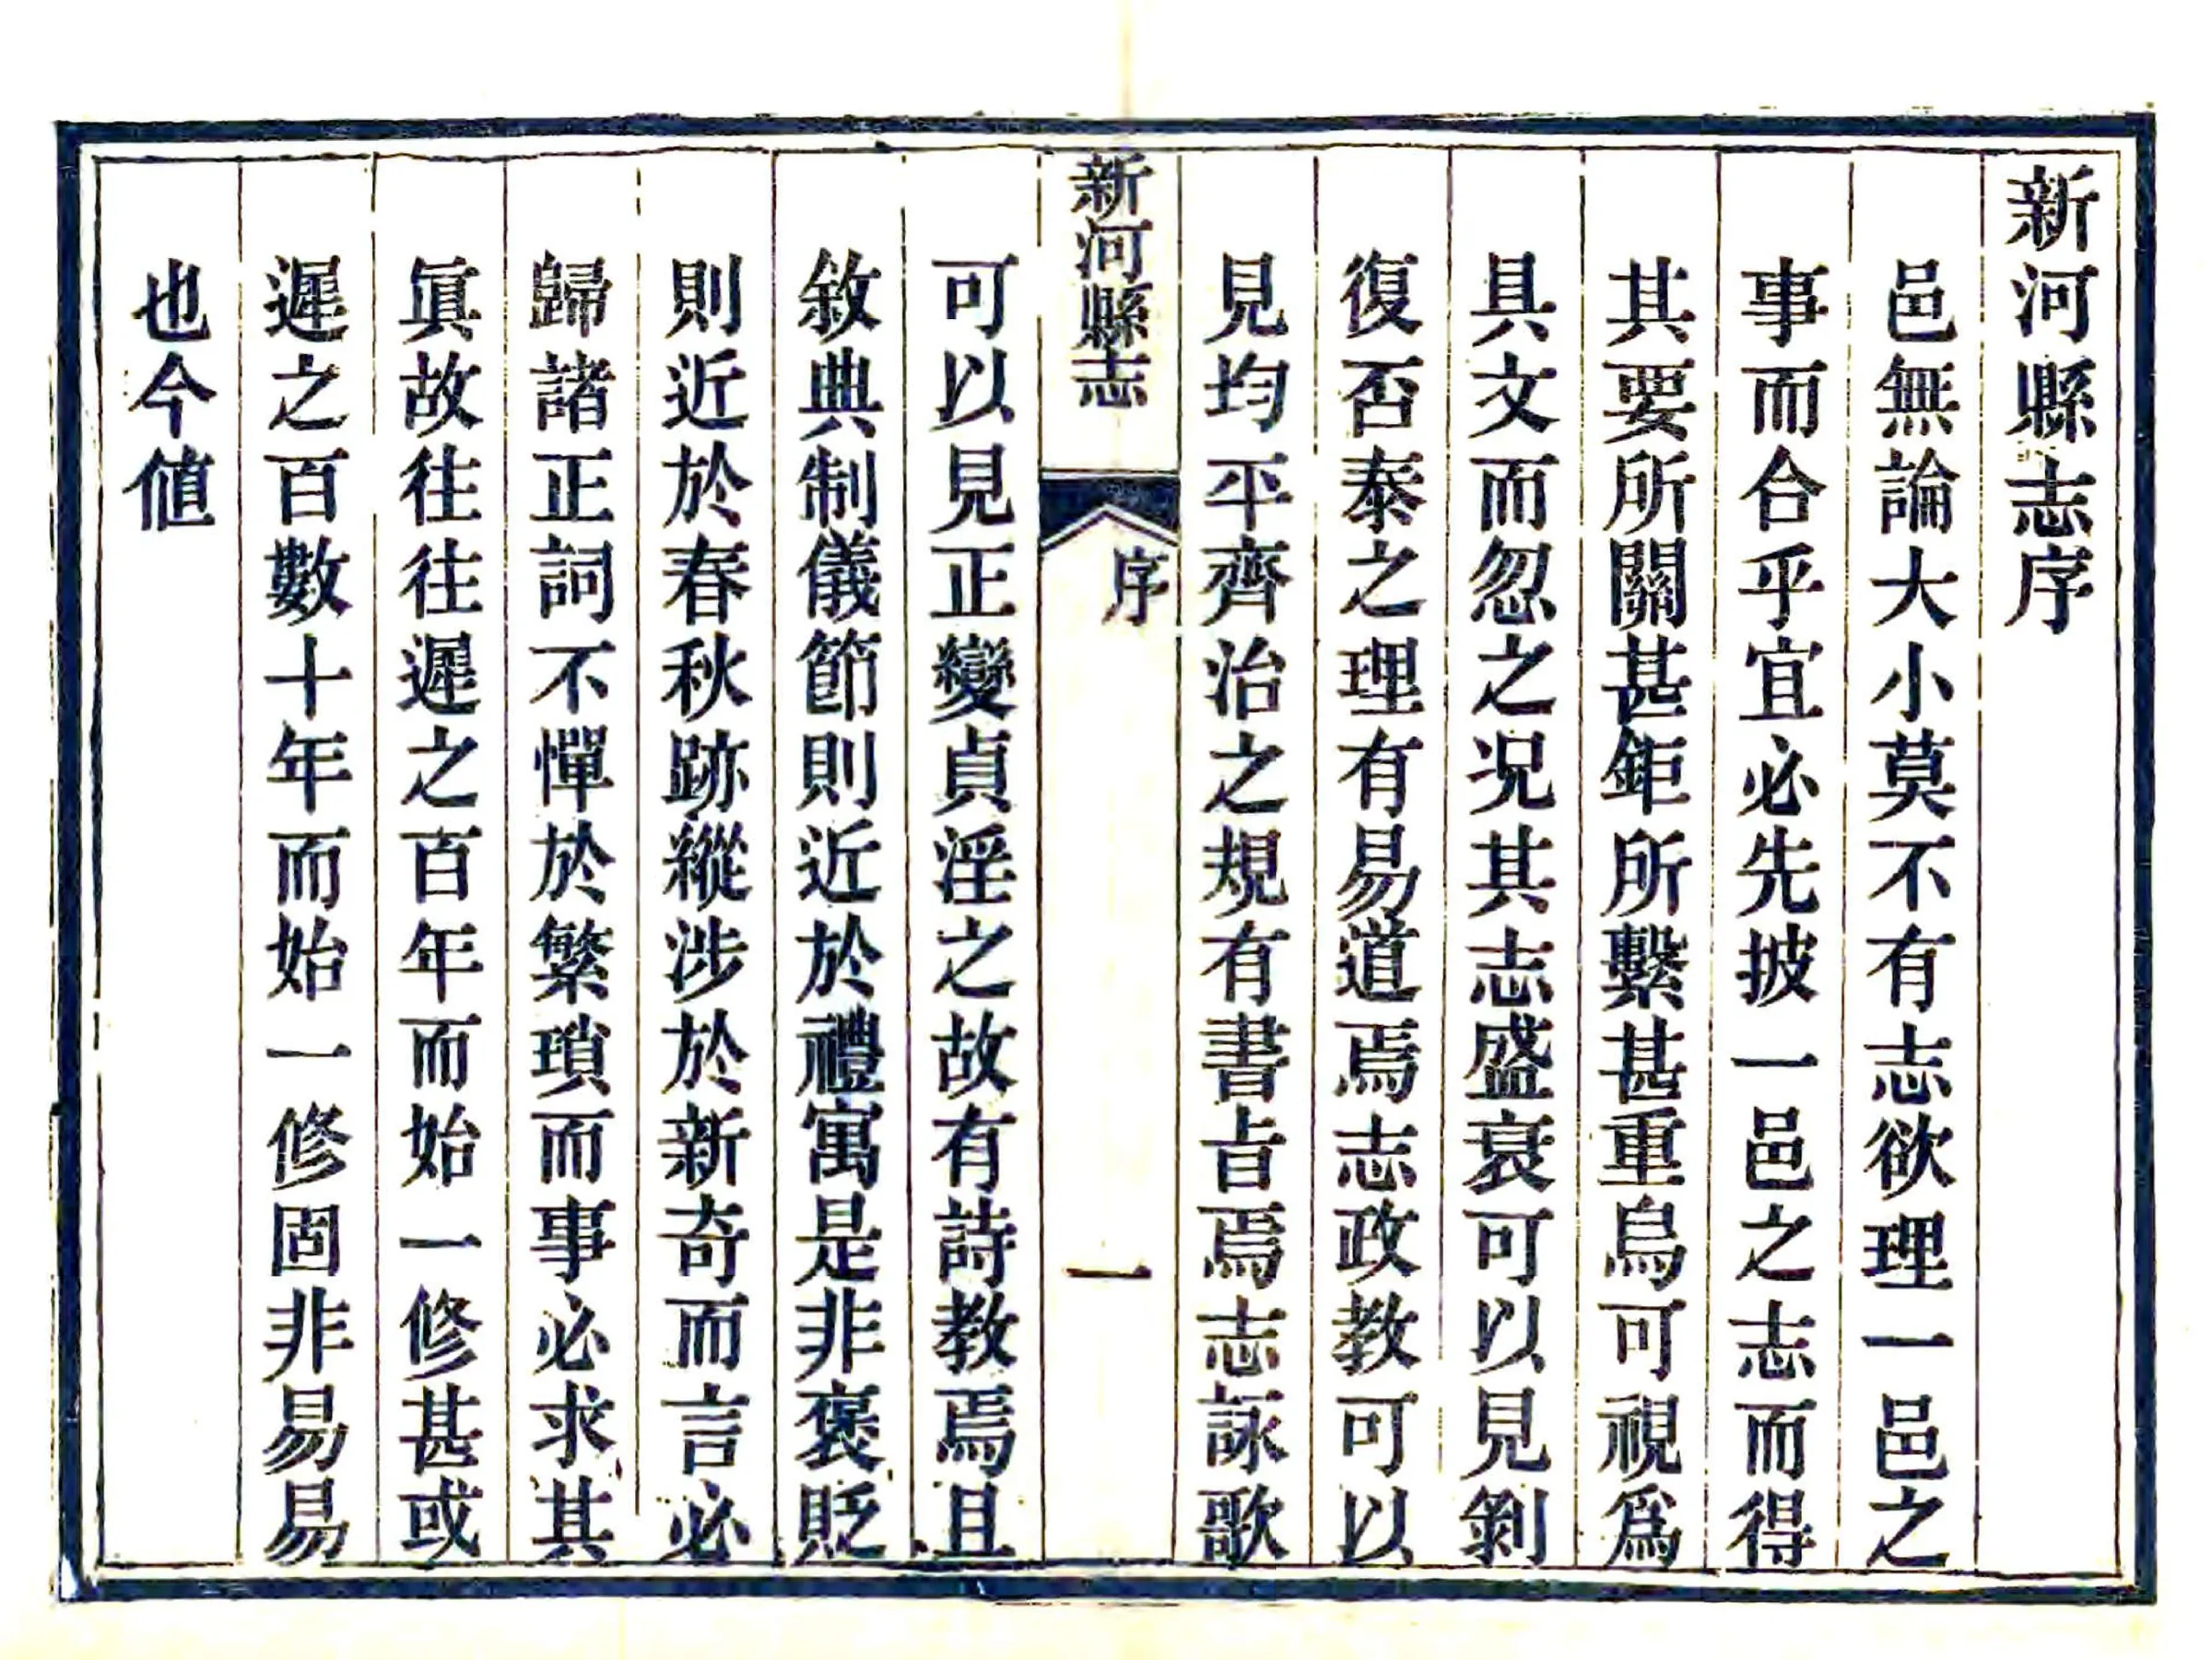 新河縣志序
邑無論大小莫不有志欲理一邑之
事而合乎宜必先披一邑之志而得
其要所關甚鉅所繫甚重烏可視爲
具文而忽之况其志盛衰可以見剝
復否泰之理有易道焉志政教可以
見均平齊治之規有書旨焉志詠歌
新河縣志
序
一
可以見正變貞淫之故有詩教焉且
敘典制儀節則近於禮寓是非褒貶
則近於春秋跡縱涉於新奇而言必
歸諸正詞不憚於繁瑣而事必求其
眞故往往遲之百年而始一修甚或
遲之百數十年而始一修固非易易
也今値